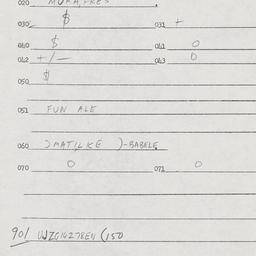 020 MUKA, FRES
030 $ 031 +
040 $ 041 0
042 +/- 043 0
050 $
051 FUN ALE
060 )MATILKE )-BABELE
070 0 071 0
901 WZG1627BEN (150